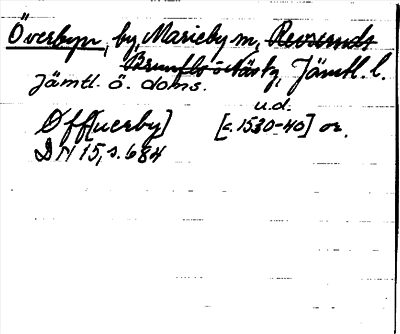 Överbyn, by, Marieby sn, Revsunds
Brunflo o Näs tg, Jämtl. l.
Jämtl. ö. doms.
u.d.
Øff[uerby] [c. 1530-40] or.
DN 15, s. 684